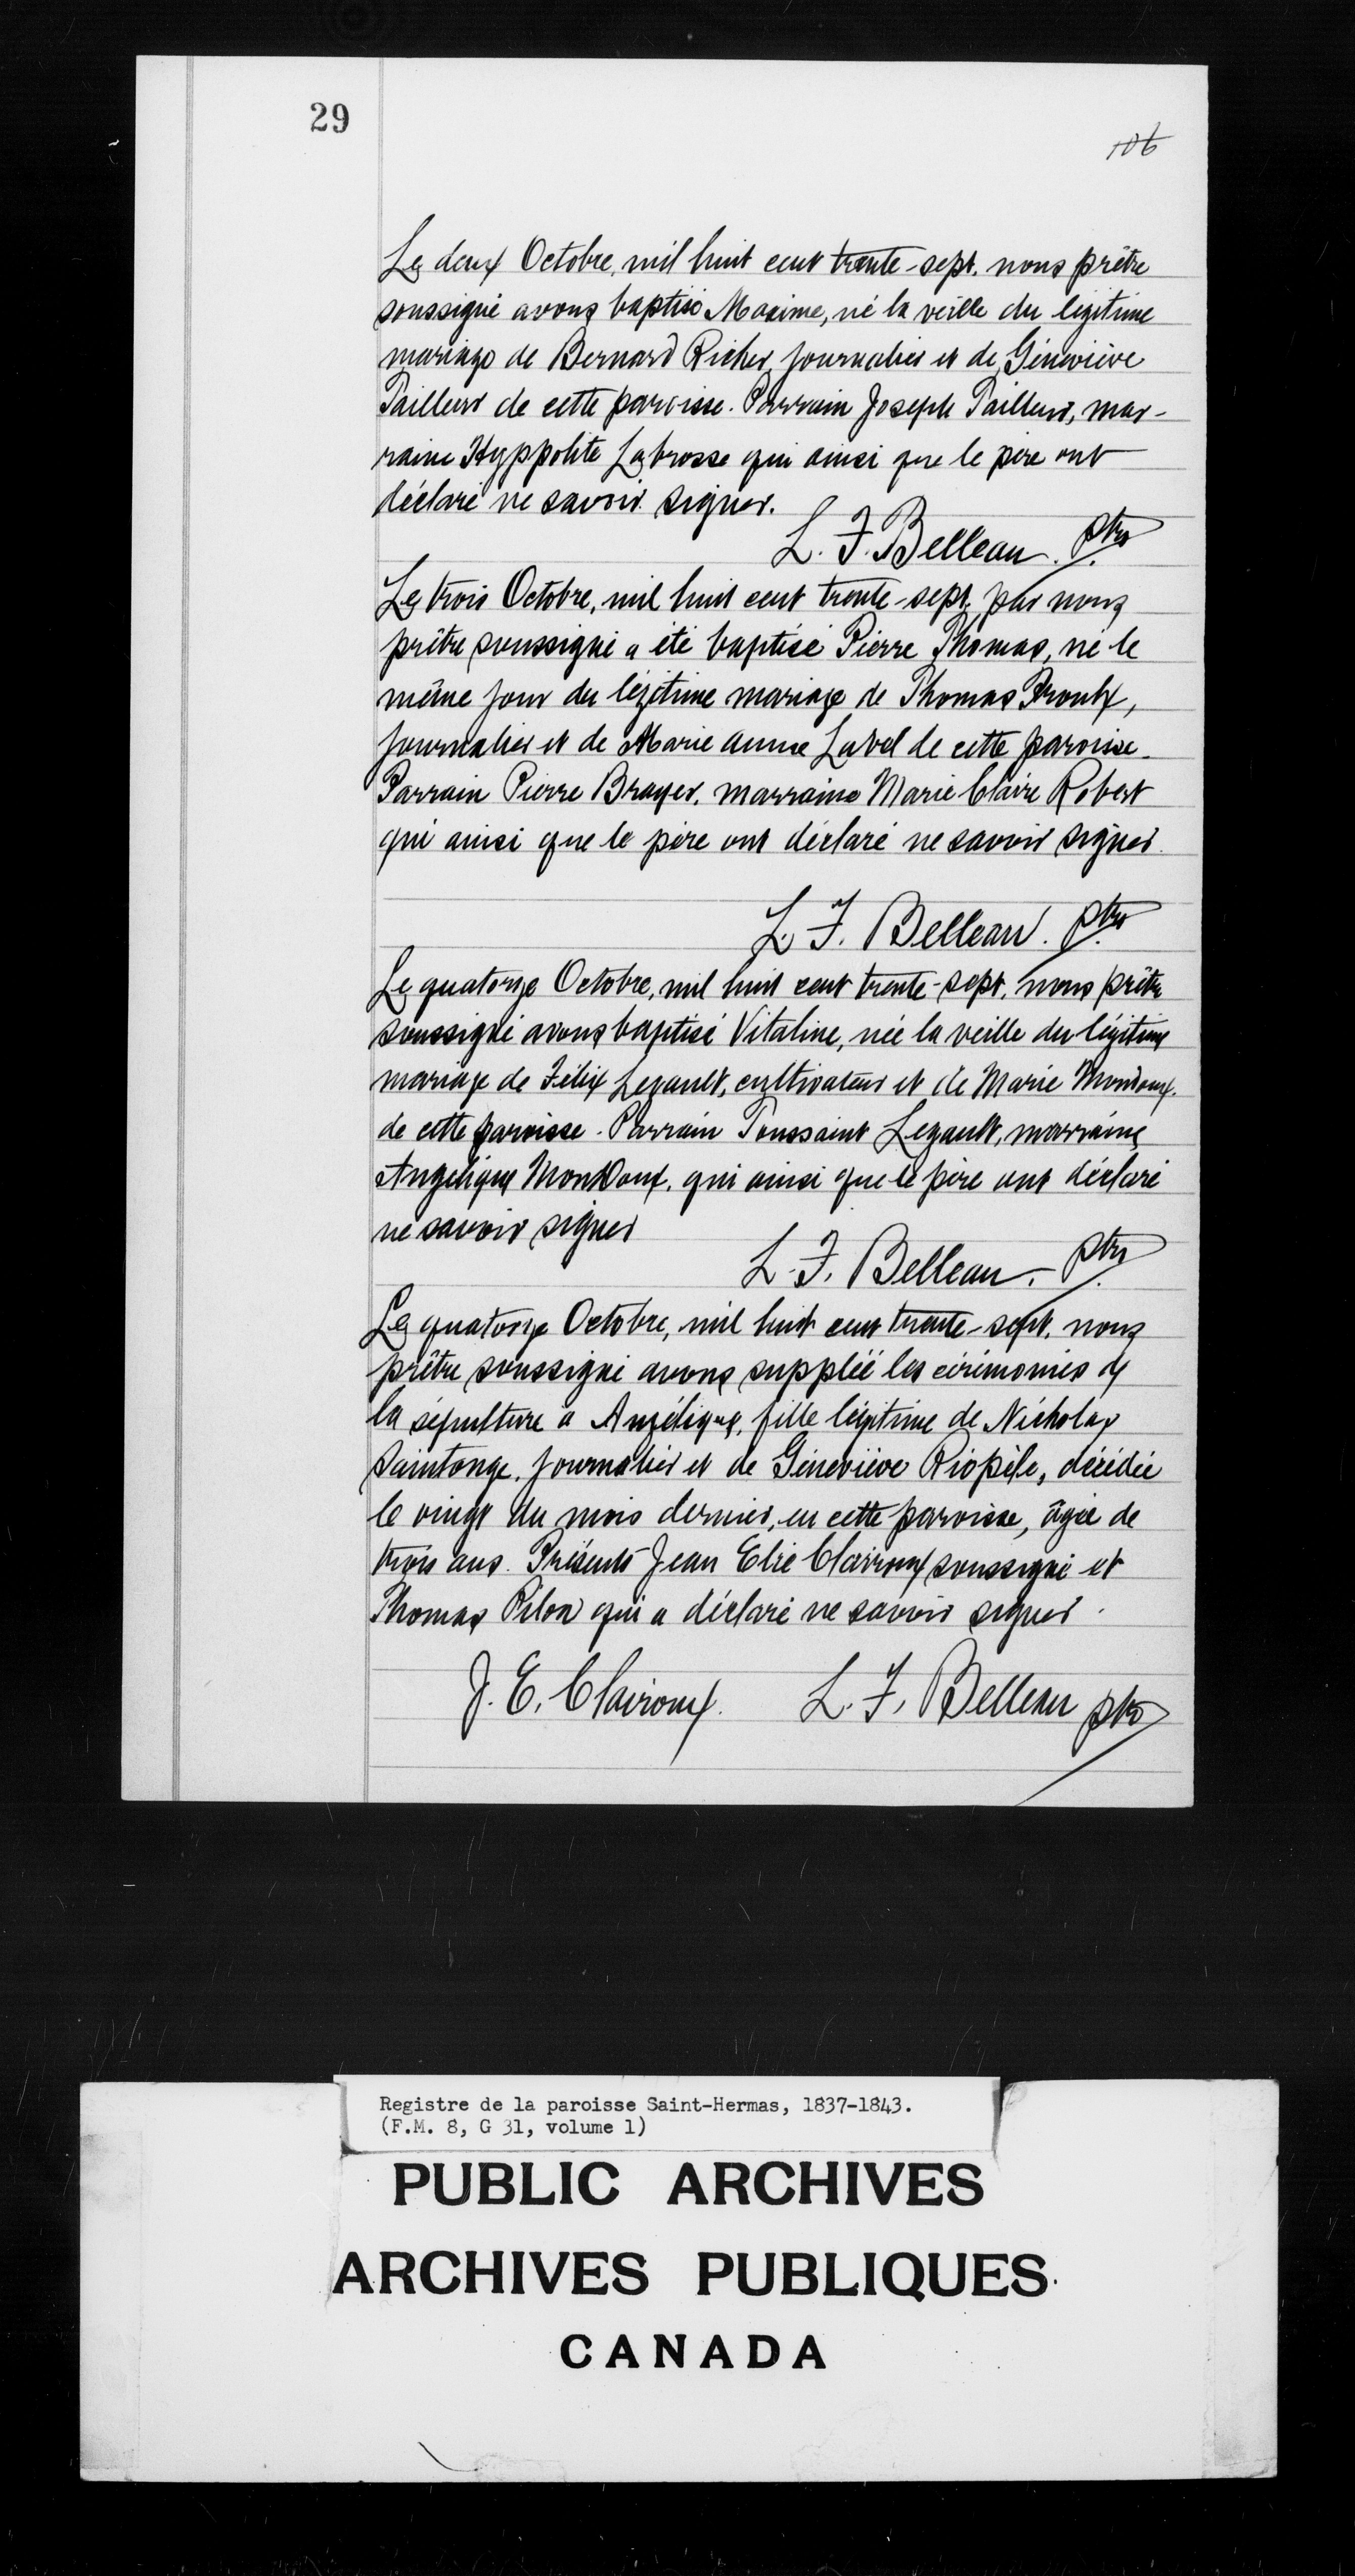 29
106
Le deux Octobre, mil huit cent trente-sept, nous prêtre
soussigné avons baptisé Maxime, né la veille du légitime
mariage de Bernard Richer, journalier et de Géneviève
Tailleur de cette paroisse. Parrain Joseph Tailleur, mar-
raine Hyppolite Labrosse qui ainsi que le père ont
déclaré ne savoir signer.
L. F. Belleau. ptre
Le trois Octobre, mil huit cent trente-sept, par nous
prêtre soussigné a été baptisé Pierre Thomas, né le
même jour du légitime mariage de Thomas Proulx,
journalier et de Marie Anne Label de cette paroisse.
Parrain Pierre Brayer, marraine Marie Claire Robert
qui ainsi que le père ont déclaré ne savoir signer.
L. F. Belleau. ptre
Le quatorze Octobre, mil huit cent trente-sept, nous prêtre
soussigné avons baptisé Vitaline, née la veille du légitime
mariage de Félix Legault, cultivateur et de Marie Mondoux.
de cette paroisse. Parrain Toussaint Legault, marraine
Angélique Mondoux, qui ainsi que le père ont déclaré
ne savoir signer
L. F. Belleau. ptre
Le quatorze Octobre, mil huit cent trente-sept, nous
prêtre soussigné avons suppléé les cérémonies de
la sépulture à Angélique, fille légitime de Nicholas
Saintonge, journalier et de Géneviève Riopèle, décédée
le vingt du mois dernier, en cette paroisse, âgée de
trois ans. Présents Jean Elie Clairoux soussigné et
Thomas Pilon qui a déclaré ne savoir signer.
J. E. Clairoux. L. F. Belleau ptre
Registre de la paroisse Saint-Hermas, 1837-1843.
(F.M. 8, G 31, volume 1)
PUBLIC ARCHIVES
ARCHIVES PUBLIQUES
CANADA